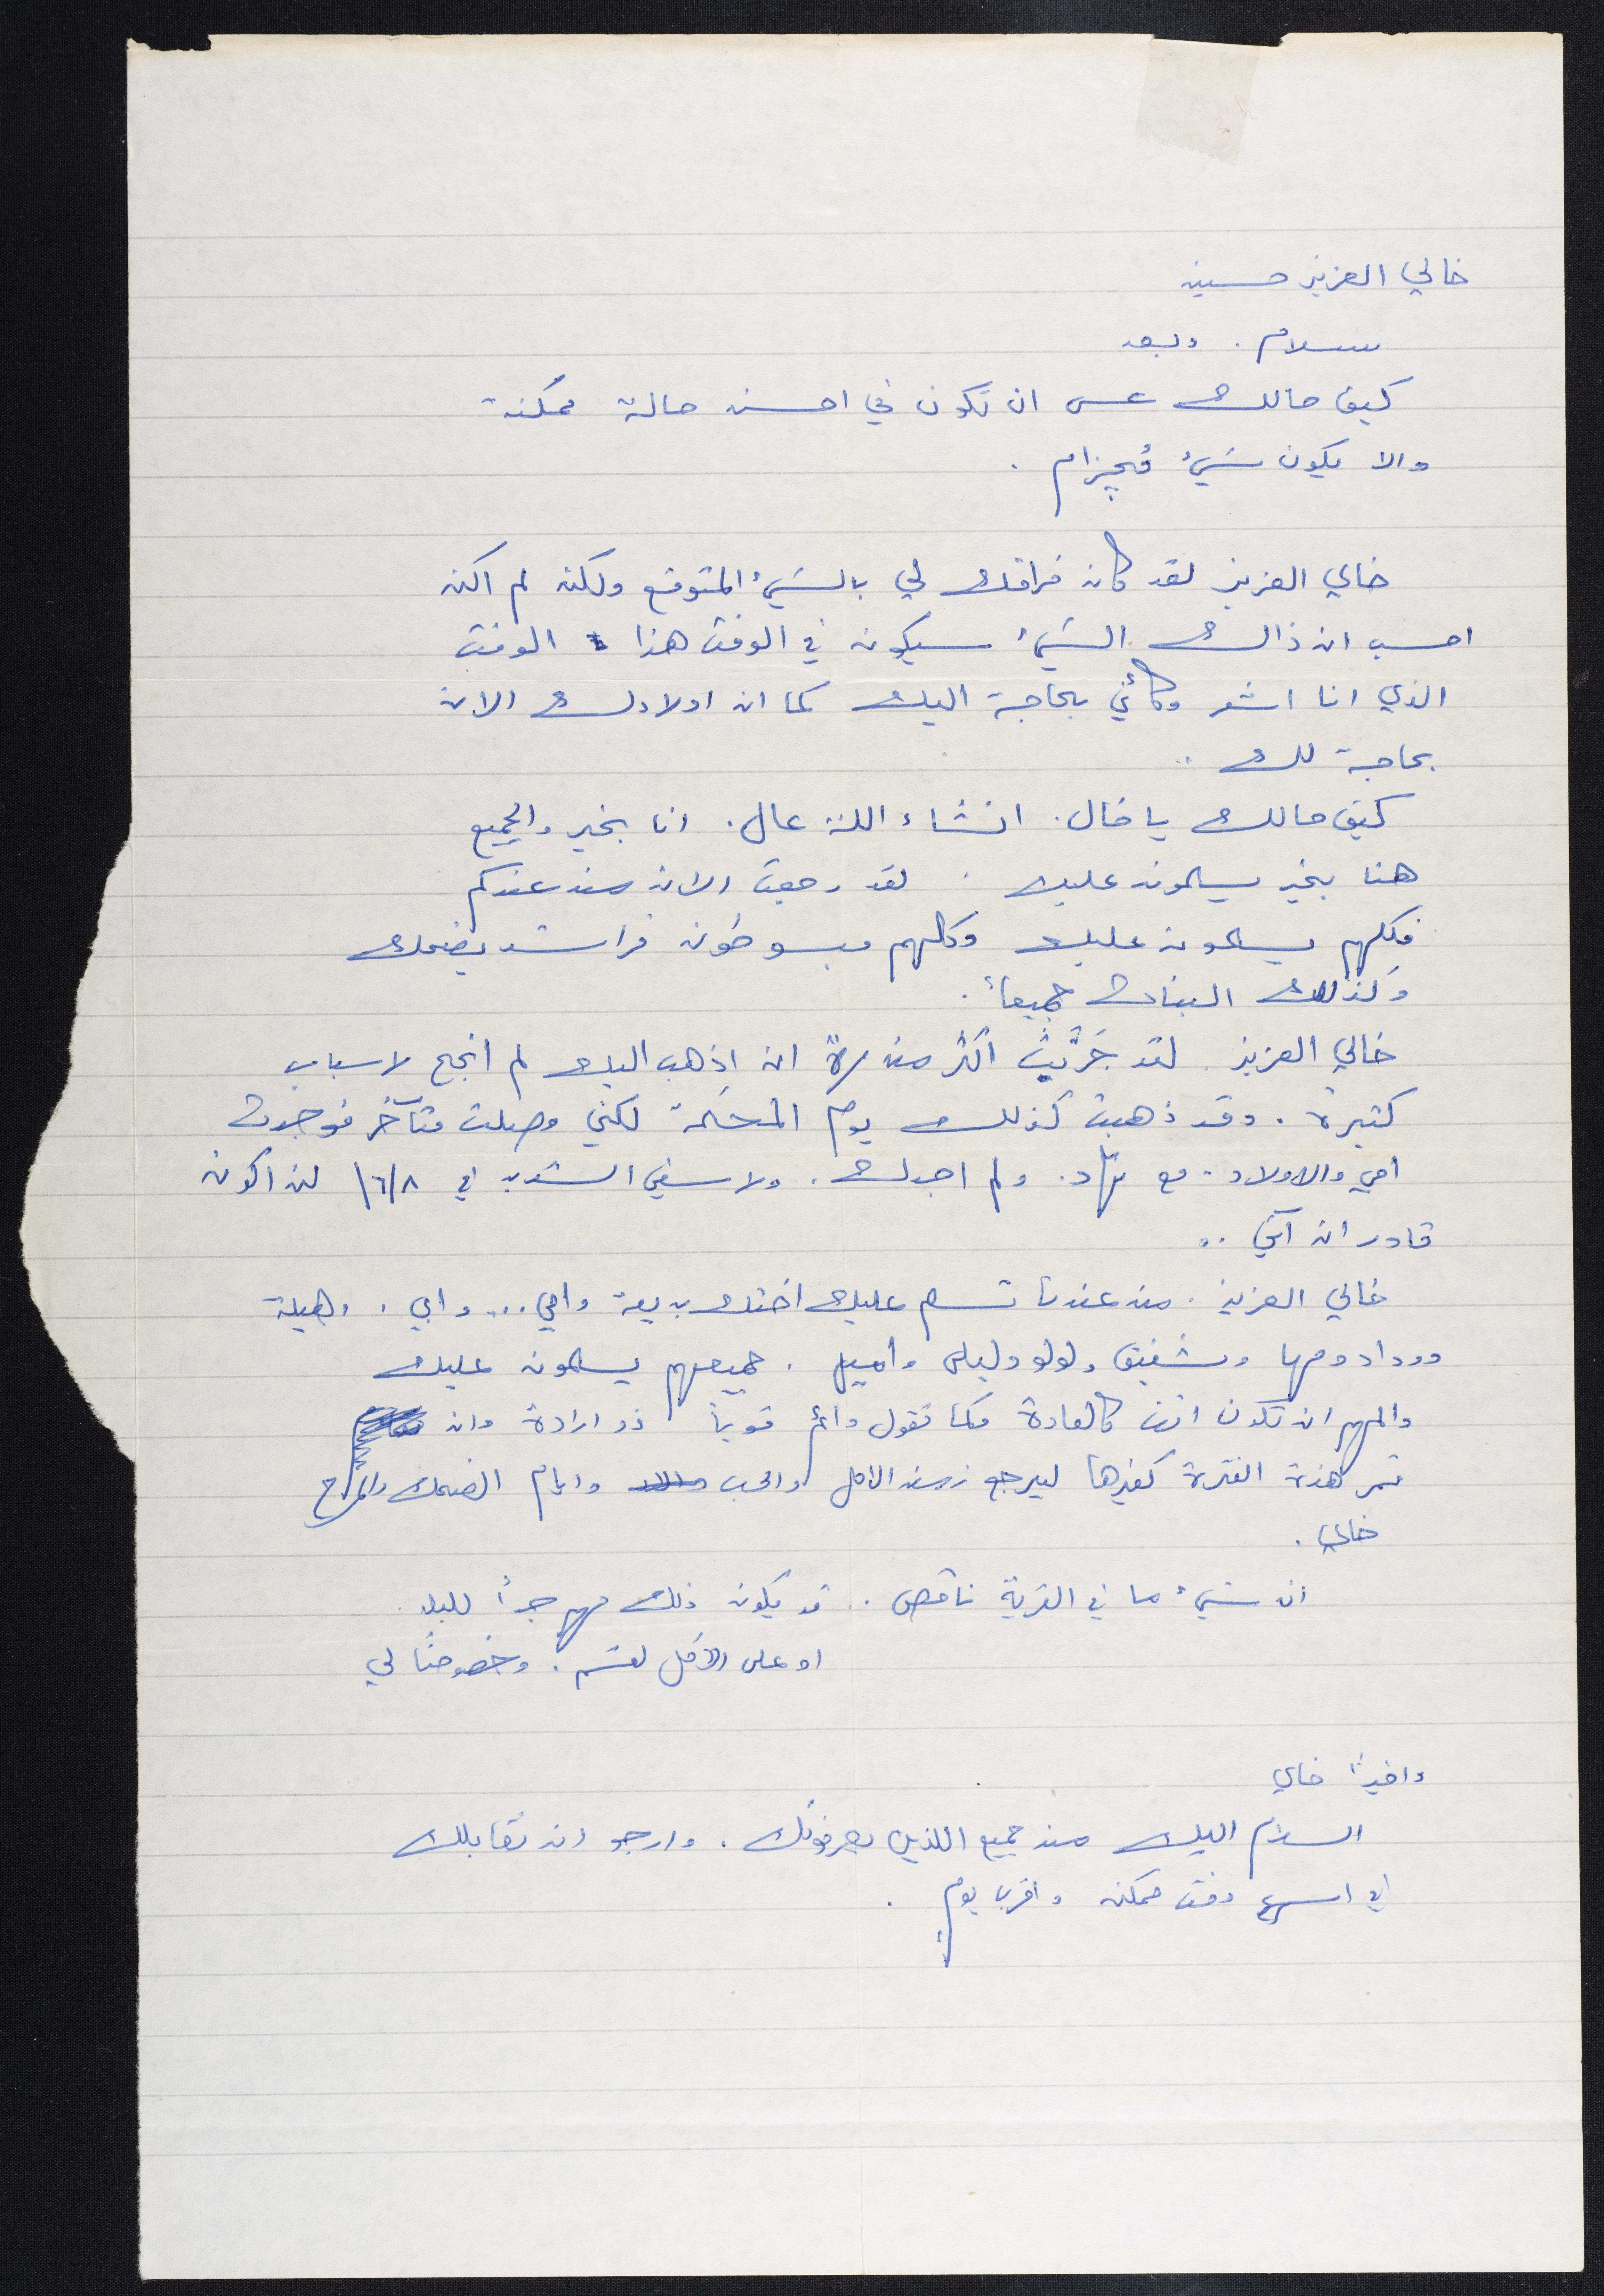 خالي العزيز حسين
سلام. وبعد
كيف حالك عسى ان تكون في احسن حالة ممكنة
والا يكون شيئ
خالي العزيز لقد كان فراقك لي بالشيئ المتوقع ولكن لم اكن
احسب ان ذالك الشيئ سيكون في الوقت هذا الوقت
الذي انا اشعر وكأني بحاجة اليك كما ان اولادك الان
بحاجة لك ..
كيف حالك يا خال. انشاء اللة عال. انا بخير والجميع
هنا بخير يسلمون عليك . لقد رجعت الان من عندكم
فكلهم يسلمون عليك وكلهم مبسوطون فراشد يضحك
وكذلك البنات جميعاً.
خالي العزيز. لقد جَرَّبت اكثر من مرة ان اذهب اليك لم انجح لاسباب
كثيرة. وقد ذهبت كذلك يوم المحكمة لكني وصلت متآخر فوجدت
امي والاولاد. مع نهاد. ولم اجدك. ولاسفي الشديد في ٦/٨ لن اكون
قادر ان آتي ..
خالي العزيز. من عندنا تسلم عليك اختك بديعة وامي... وابي. وهيلة
ووداد ومها وشفيق ولولو وليلى واميل. جميعهم يسلمون عليك
والمهم ان تكون انت كالعادة فكما نقول دائم قوياً ذو ارادة وان
تمر هذة الفترة كغيرها ليرجع زمن الامل والحب وايام الضحك والمزاح
خالي.
ان شيئ ما في القرية ناقص.. قد يكون ذلك مهم جداً للبلد.
او على الاقل لقسم. وخصوصًا لي
واخيراً خالي
السلام اليك من جميع اللذين يعرفونك. وارجو ان نقابلك
في اسرع وقت ممكن واقرب يوم.